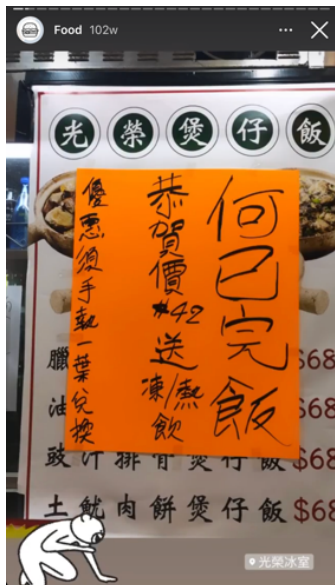 Food 102w
光榮煲仔飯
何已完飯
恭賀價$42送凍/熱飲
優惠須手執一葉兌換
臘
$68
油
$68
豉汁排骨煲仔飯 $68
土魷肉餅煲仔飯 $68
光榮冰室